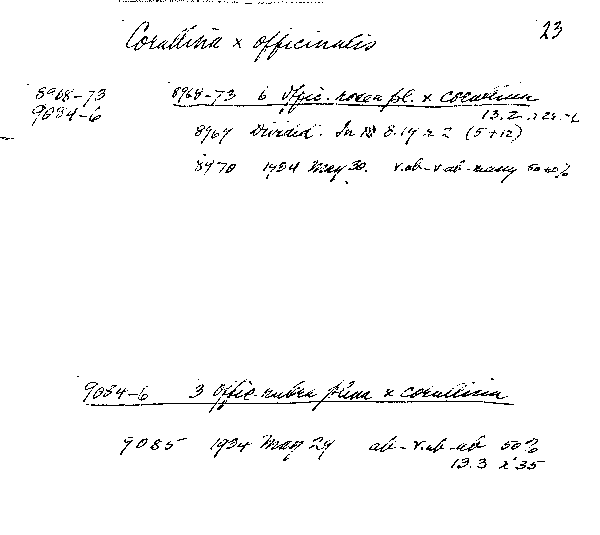 Corallina x officinalis
23
8968-73
9084-6
8968-73 6 Offic. rosea pl. x corallina
13.2 x
8969 Divided. In 8.19 r 2 (5+12)
8970 1934 May 30. v.ab-v ab-many 50%
9084-6 3 Offic. rubra plena x corallina
9085 1934 May 24 ab-v.ab-ab 50%
13.3 x 35